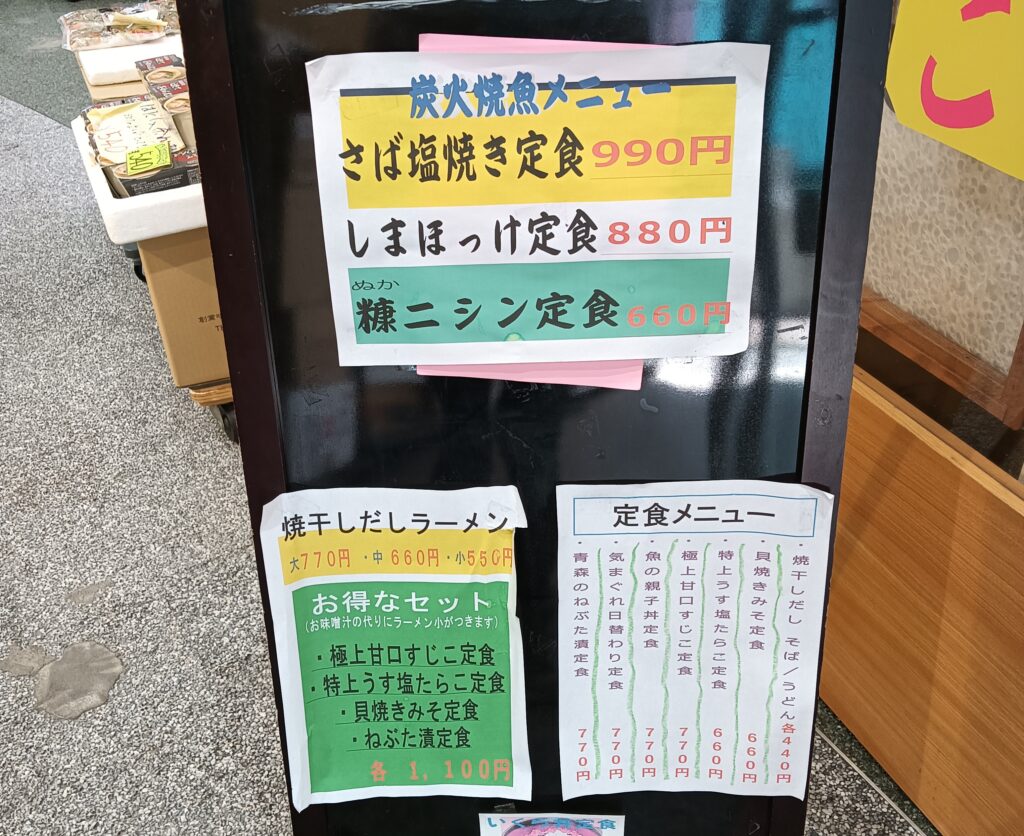 炭火焼魚メニュー
さば塩焼き定食 990円
しまほっけ定食 880円
ぬか
糠ニシン定食 660円
焼干しだしラーメン
大770円・中660円・小550円
お得なセット
(お味噌汁の代りにラーメン小がつきます)
・極上甘口すじこ定食
・特上うす塩たらこ定食
・貝焼きみそ定食
・ねぶた漬定食
各 1,100円
定食メニュー
・焼干しだし そば/うどん各440円
・貝焼きみそ定食 660円
・特上うす塩たらこ定食 660円
・極上甘口すじこ定食 770円
・魚の親子丼定食 770円
・気まぐれ日替わり定食 770円
・青森のねぶた漬定食 770円
540